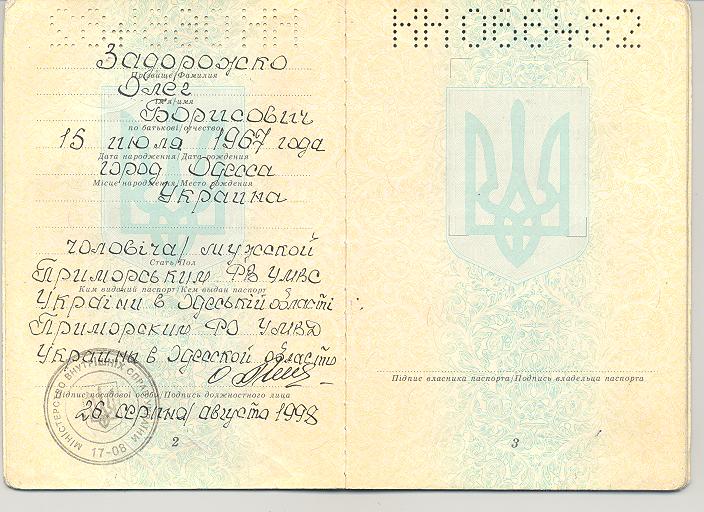 Задорожко
Прізвище/Фамилия
Олег
Ім'я/имя
Борисович
по батькові/отчество
15 июля 1967 года
Дата народження/Дата рождения
город Одесса
Місце народження/Место рождения
Украина
чоловіча/мужской
Стать/Пол
Приморським РВ УМВС
Ким виданий паспорт/Кем выдан паспорт
України в Одеській області
Приморским РО УМВД
Украины в Одесской области
Підпис посадової особи/Подпись должностного лица
26 серпня/августа 1998
МІНІСТЕРСТВО ВНУТРІШНІХ СПРАВ УКРАЇНИ
17-08
2
КК066482
Підпис власника паспорта/Подпись владельца паспорта
3